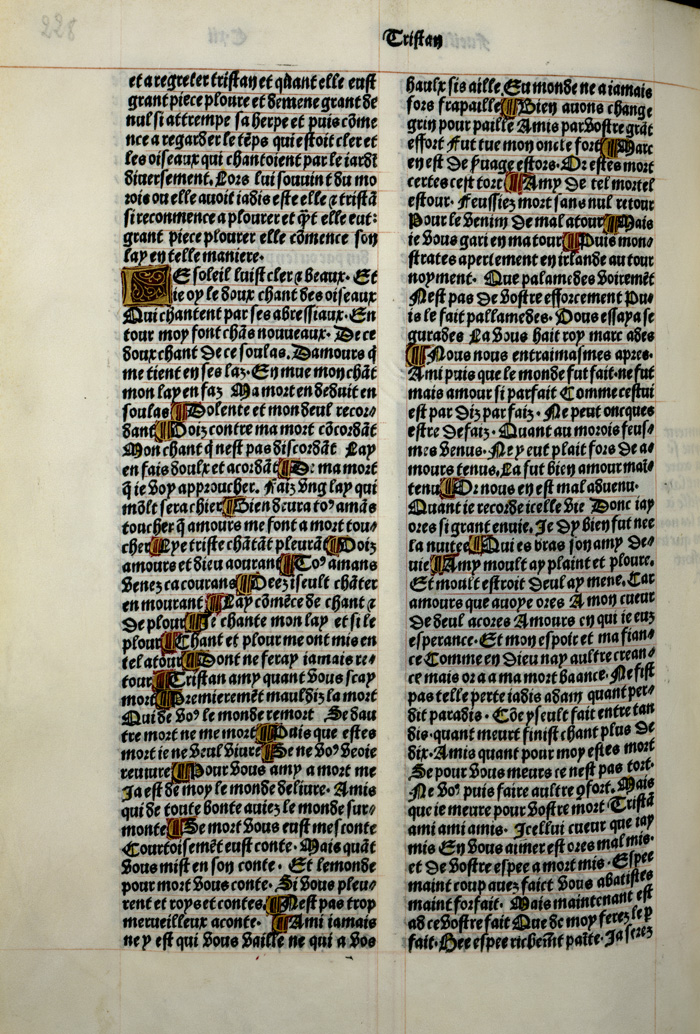 228
Tristan
et a regreter tristan et quāt elle eust
grant piece ploure et demene grant de
nul si attrempe sa herpe et puis cōme
nce a regarder le tēps qui estoit cler et
les oiseaux qui chantoient par le iardī
diuersement. Lors lui souuint du mo
rois ou elle auoit iadis este elle ⁊ tristā
si recommence a plourer et q̄t elle eut:
grant piece plourer elle cōmence son
lay en telle maniere.
E soleil luist cler ⁊ beaux. Et
ie oy le doux chant des oiseaux
Qui chantent par ses abressiaux. En
tour moy font chās nouueaux. De ce
doux chant de ce soulas. Damours q̄
me tient en ses laz. En mue mon chāt
mon lay en faz Ma mort en deduit en
soulas ¶Dolente et mon deul recor/
dant ¶Doiz contre ma mort cōcordāt
Mon chant q̄ nest pas discordāt Lay
en fais doulx et acordāt ¶D: ma mort
q̄ ie voy approucher. Faiz vng lay qui
mōlt sera chier ¶Bien deura toꝰ amās
toucher q̄ amours me font a mort tou/
cher ¶Lye triste chātāt pleurāt ¶Doiz
amours et dieu aourant ¶Toꝰ amans
venez ca courans ¶Deez iseult chāter
en mourant ¶Lay cōmēce de chant ⁊
de plour ¶Je chante mon lay et si le
plour ¶Chant et plour me ont mis en
tel atour ¶Dont ne feray iamais re/
tour ¶Tristan amy quant vous scay
mort ¶Premieremēt mauldiz la mort
Qui de voꝰ le monde remort Se dau
tre mort ne me mort ¶Puis que estes
mort ie ne veul viure ¶Se ne voꝰ veoie
reuiure ¶Pour vous amy a mort me
Ja est de moy le monde deliure. Amis
qui de toute bonte auiez le monde sur/
monte ¶Se mort vous eust mesconte
Courtoisemēt eust conte. Mais quāt
vous mist en son conte. Et le monde
pour mort vous conte. Si vous pleu/
rent et roys et contes. ¶Nest pas trop
merueilleux a conte. ¶Ami iamais
ne y est qui vous vaille ne qui a vos
haulx fis aille. Su monde ne a iamais
fors frapaille ¶Bien auons change
grin pour paille Amis par vostre grāt
effort Fut tue mon oncle fort ¶Marc
en est de p̄uage estors. Or estes mort
certes cest tort ¶Amy de tel mortel
estour. Feussiez mort sans nul retour
Pour le venim de mal atour ¶Mais
ie vous gari en ma tour ¶Puis mon/
strates apertement en irlande au tour
noyment. Que palamedes voiremēt
Nest pas de vostre efforcement Pu/
is le fait pallamedes. Vous essaya se
gurades La vous hait roy marc ades
¶Nous nous entraimasmes apres.
Ami puis que le monde fut fait. ne fut
mais amour si parfait Comme cestui
est par diz par faiz. Ne peut oncques
estre defaiz. Quant au morois feus/
mes venus. Ne y eut plait fors de a/
mours tenus. La fut bien amour mai/
tenu ¶Or nous en est mal aduenu.
Quant ie recorde icelle vie Donc iay
ores si grant enuie. Je dy bien fut nee
la nuitee ¶Qui es bras son amy de/
uie ¶Amy moult ay plaint et ploure.
Et moult estroit deul ay mene. Car
amours que auoye ores A mon cueur
de deul acores Amours en qui ie euz
esperance. Et mon espoir et ma fian/
ce Comme en dieu nay aultre crean/
ce mais or a a ma mort baance. Ne fist
pas telle perte iadis adam quant per/
dit paradis. Cōe yseult fait entre tan
dis. quant meurt finist chant plus de
dix. Amis quant pour moy estes mort
Se pour vous meurs ce nest pas tort.
Ne voꝰ puis faire aultre ꝯfort. Mais
que ie meure pour vostre mort Tristā
ami ami amis. Icellui cueur que iay
mis En vous aimer est ores mal mis.
et de vostre espee a mort mis. Espee
maint coup auez faict vous abatistes
maint forfait. Mais maintenant est
ad ce vostre fait Que de moy ferez le p̄
fait. Hee espee richemēt paīte. Ja serez